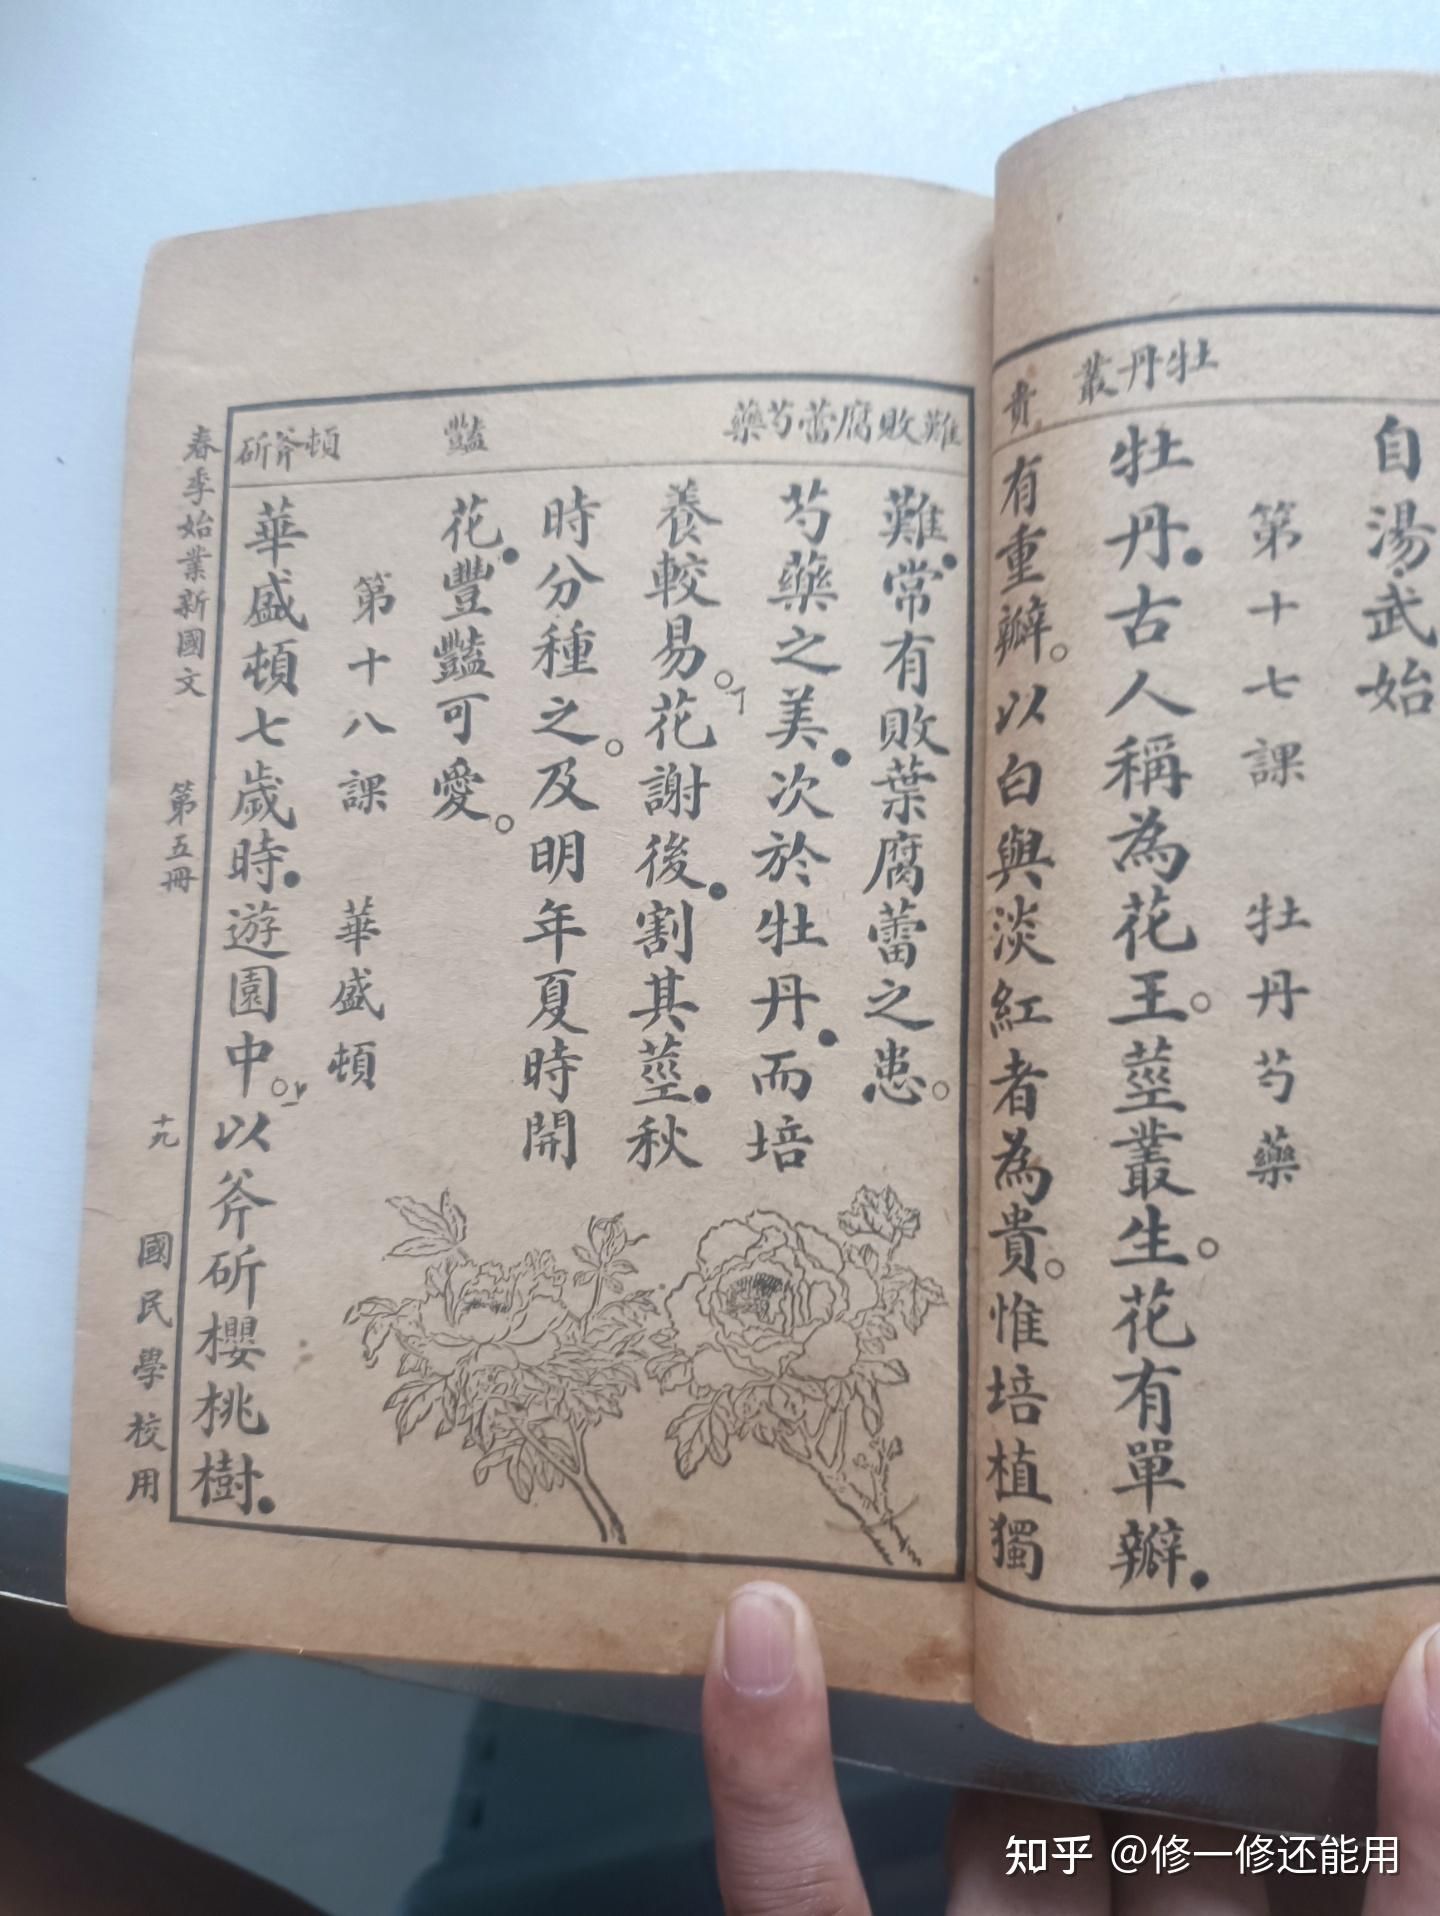 牡丹叢
貴
自湯武始
第十七課 牡丹芍藥
牡丹●古人稱為花王○莖叢生○花有單瓣●
有重瓣○以白與淡紅者為貴○惟培植獨
難敗腐蕾芍藥
豔
頓斧斫
難●常有敗葉腐蕾之患○
芍藥之美●次於牡丹●而培
養較易○花謝後●割其莖●秋
時分種之○及明年夏時開
花●豐豔可愛○
第十八課 華盛頓
華盛頓七歲時●遊園中○以斧斫櫻桃樹●
春季始業新國文 第五冊 十九 國民學校用
知乎 @修一修还能用